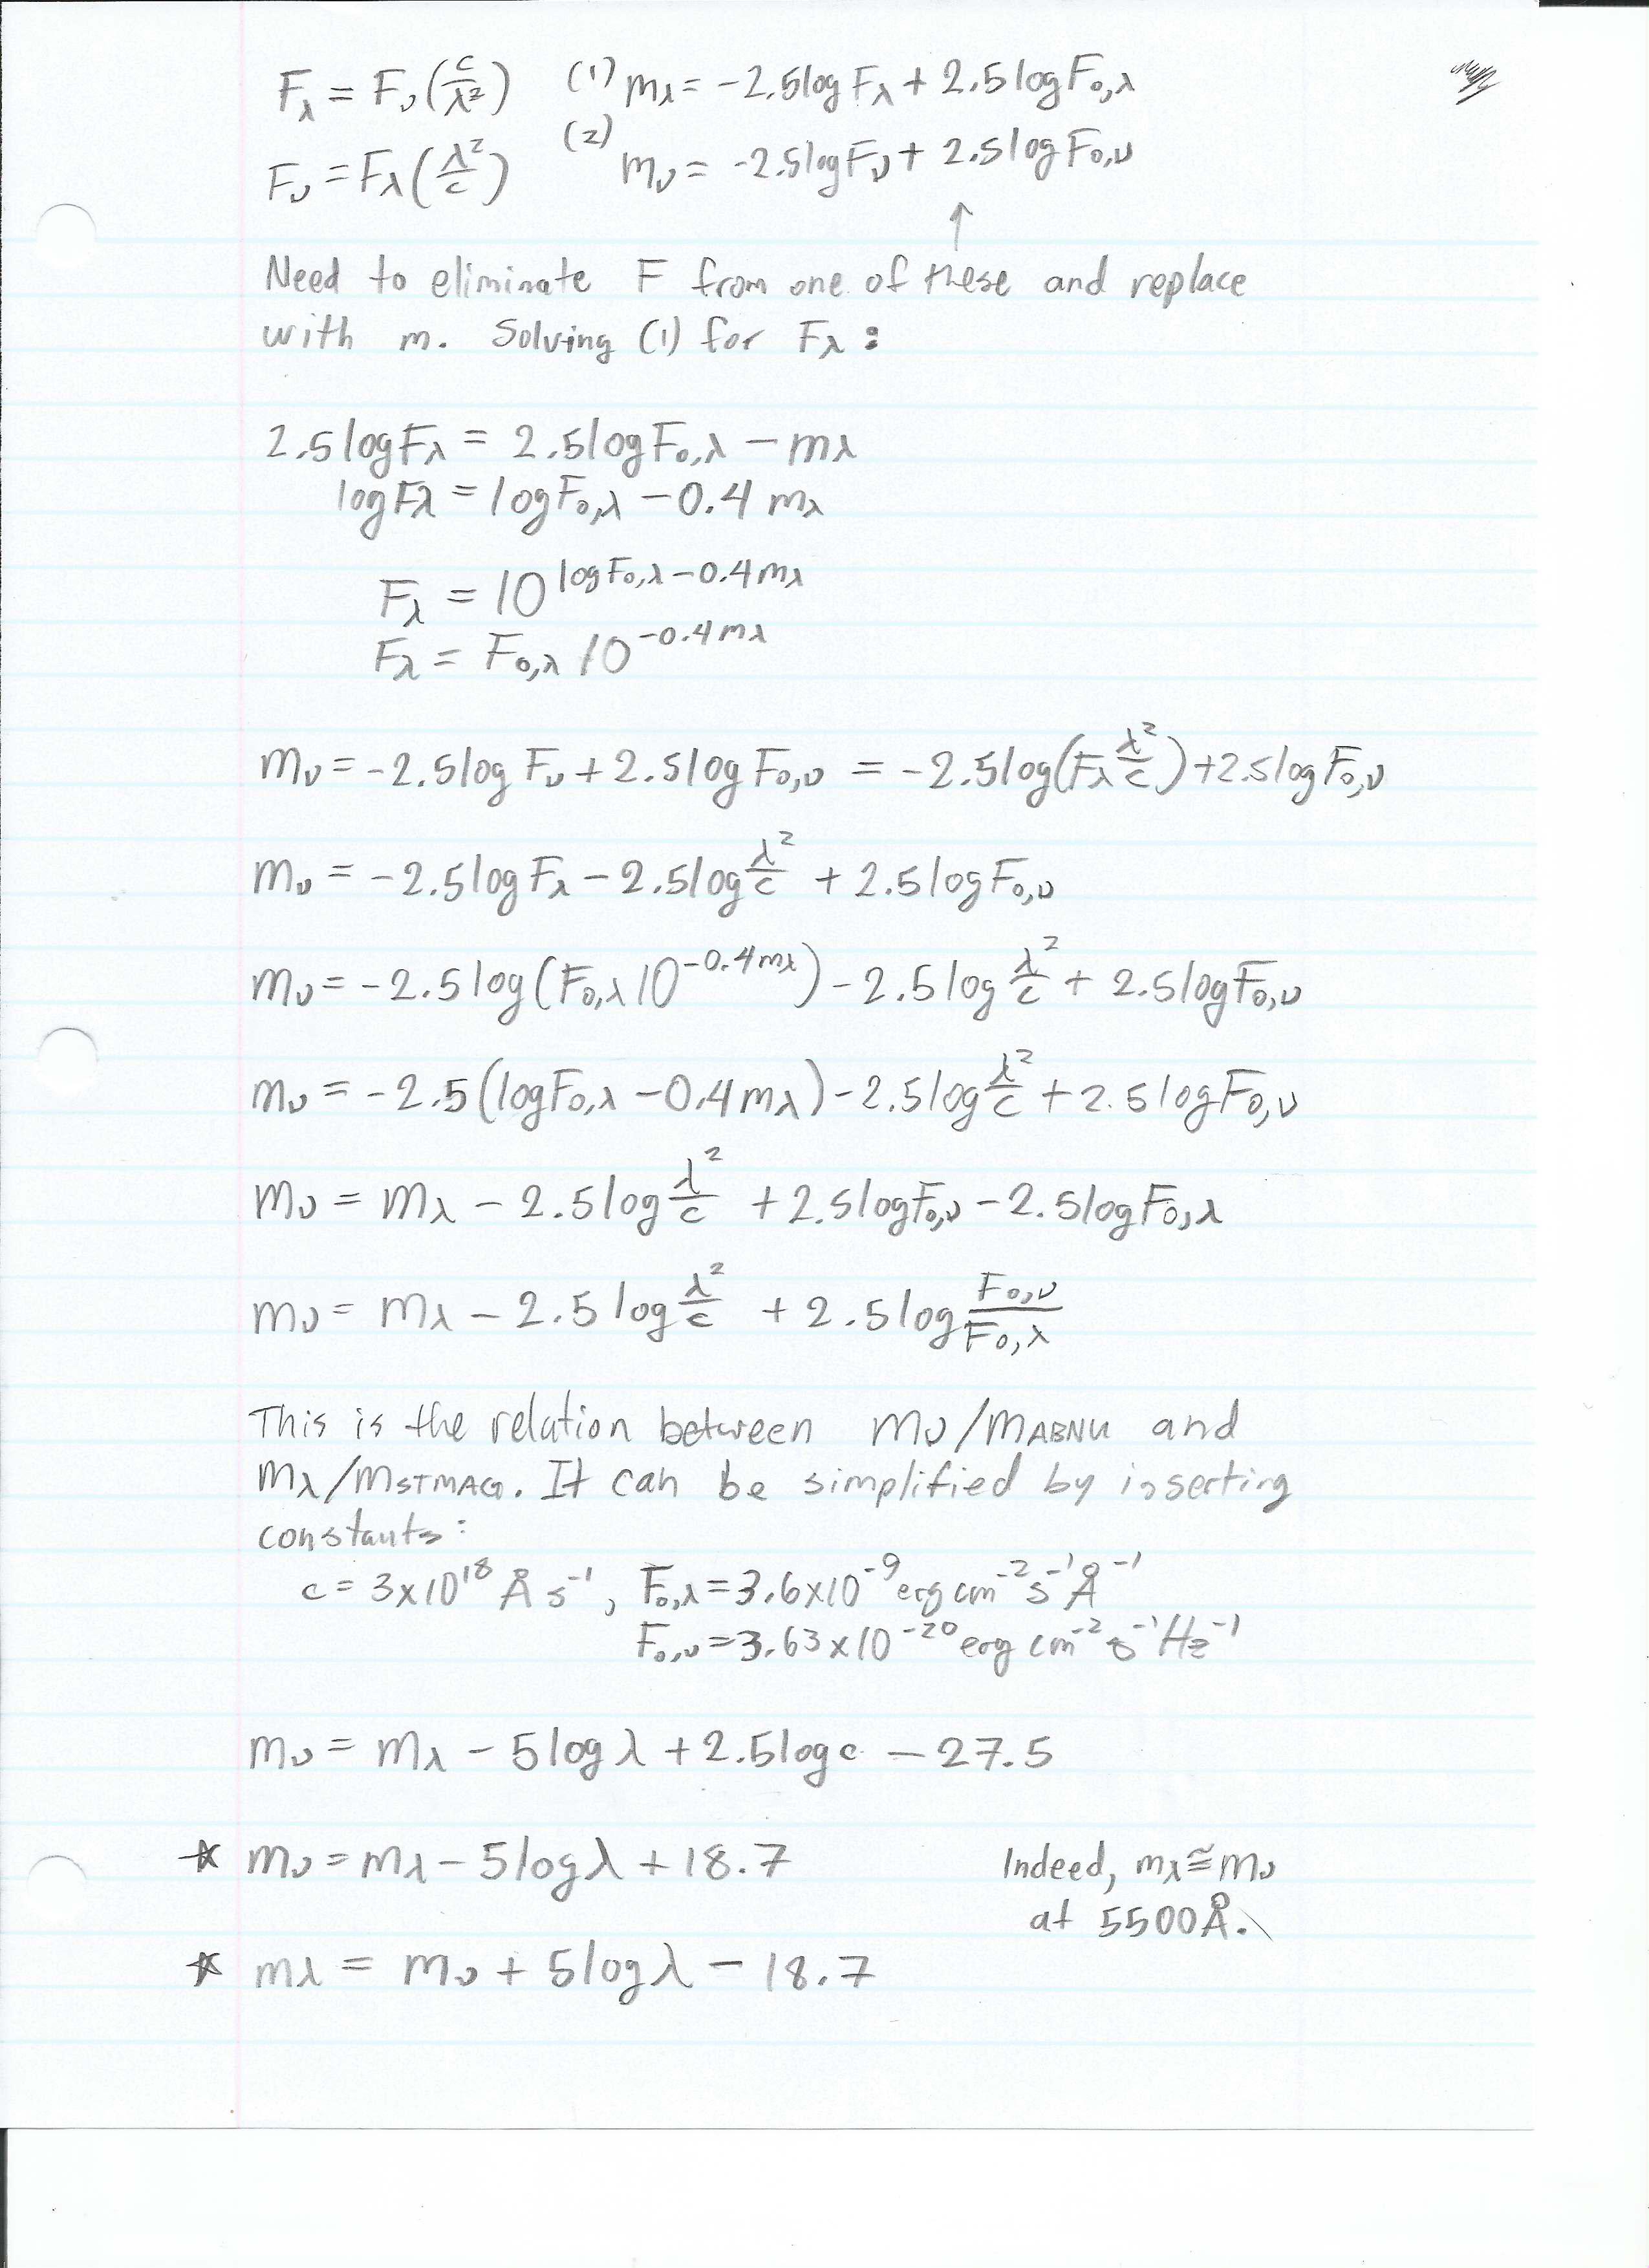 F_λ = F_ν (c/λ²)   (1) m_λ = -2.5 log F_λ + 2.5 log F_0,λ
F_ν = F_λ (λ²/c)   (2) m_ν = -2.5 log F_ν + 2.5 log F_0,ν
↑
Need to eliminate F from one of these and replace
with m. Solving (1) for F_λ:
2.5 log F_λ = 2.5 log F_0,λ - m_λ
log F_λ = log F_0,λ - 0.4 m_λ
F_λ = 10^(log F_0,λ - 0.4 m_λ)
F_λ = F_0,λ 10^(-0.4 m_λ)
m_ν = -2.5 log F_ν + 2.5 log F_0,ν = -2.5 log (F_λ λ²/c) + 2.5 log F_0,ν
m_ν = -2.5 log F_λ - 2.5 log λ²/c + 2.5 log F_0,ν
m_ν = -2.5 log (F_0,λ 10^(-0.4 m_λ)) - 2.5 log λ²/c + 2.5 log F_0,ν
m_ν = -2.5 (log F_0,λ - 0.4 m_λ) - 2.5 log λ²/c + 2.5 log F_0,ν
m_ν = m_λ - 2.5 log λ²/c + 2.5 log F_0,ν - 2.5 log F_0,λ
m_ν = m_λ - 2.5 log λ²/c + 2.5 log F_0,ν/F_0,λ
This is the relation between m_ν/m_ABNU and
m_λ/m_STMAG. It can be simplified by inserting
constants:
c = 3x10^18 Å s^-1, F_0,λ = 3.6x10^-9 erg cm^-2 s^-1 Å^-1
F_0,ν = 3.63x10^-20 erg cm^-2 s^-1 Hz^-1
m_ν = m_λ - 5 log λ + 2.5 log c - 27.5
* m_ν = m_λ - 5 log λ + 18.7   Indeed, m_λ ≅ m_ν
at 5500 Å.
* m_λ = m_ν + 5 log λ - 18.7